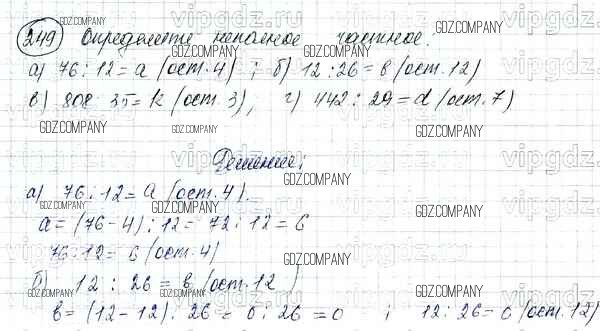 249 Определите неполное частное.
а) 76 : 12 = a (ост. 4) ; б) 12 : 26 = в (ост. 12)
в) 808 : 35 = k (ост. 3), г) 442 : 29 = d (ост. 7)
Решение:
а) 76 : 12 = a (ост. 4).
a = (76 - 4) : 12 = 72 : 12 = 6
76 : 12 = 6 (ост. 4)
б) 12 : 26 = в (ост. 12)
в = (12 - 12) : 26 = 0 : 26 = 0 ; 12 : 26 = 0 (ост. 12)
GDZ.COMPANY
vipgdz.ru